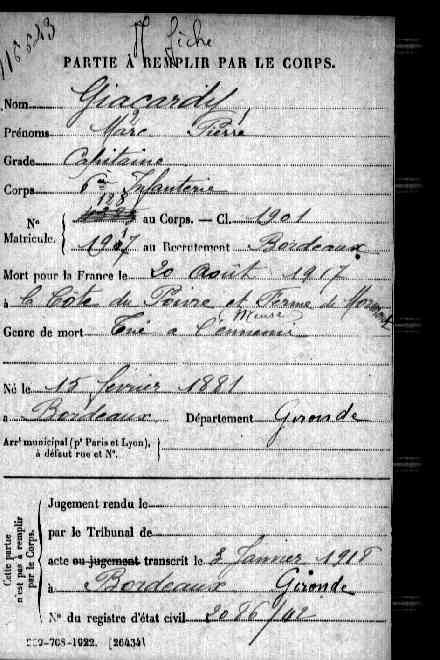 116543
Nlle fiche
PARTIE À REMPLIR PAR LE CORPS.
Nom Giacardy
Prénoms Marc Pierre
Grade Capitaine
Corps 6e Infanterie
188
Nº Matricule. au Corps. — Cl. 1901
1917 au Recrutement Bordeaux
Mort pour la France le 20 Août 1917
à la Côte du Poivre et Ferme de
Meuse
Genre de mort Tué à l'ennemi
Né le 15 février 1881
à Bordeaux Département Gironde
Arrt municipal (pr Paris et Lyon),
à défaut rue et Nº.
Cette partie n'est pas à remplir par le Corps.
Jugement rendu le
par le Tribunal de
acte ou jugement transcrit le 3 Janvier 1918
à Bordeaux Gironde
Nº du registre d'état civil 2086/42
-708-1922. [26434]